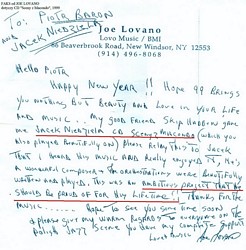 FAKS od JOE LOVANO
dotyczy CD "Sceny z Macondo", 1999
To: PIOTR BARON
and
JACEK NIEDZIELA
Joe Lovano
Lovo Music / BMI
66 Beaverbrook Road, New Windsor, NY 12553
(914) 496-8068
Hello Piotr
Happy New Year !! Hope 99 Brings
you nothing But Beauty and Love in your Life
and Music... My good Friend Skip Hadden gave
me JACEK NIEDZIELA CD Sceny Z Macondo (which you
also played Beautifully on) Please Relay this to Jacek
that I heard his Music and Really enjoyed it, He's
a wonderful composer - The orchestrations were Beautifully
written and played. This was an Ambitious project that he
should be proud of For His Life time!! Thanks For the
Music...... Hope to see you some time soon and
Please give my warm Regards to everyone on the
Polish Jazz scene you have my complete Support
Love & Music Joe Lovano